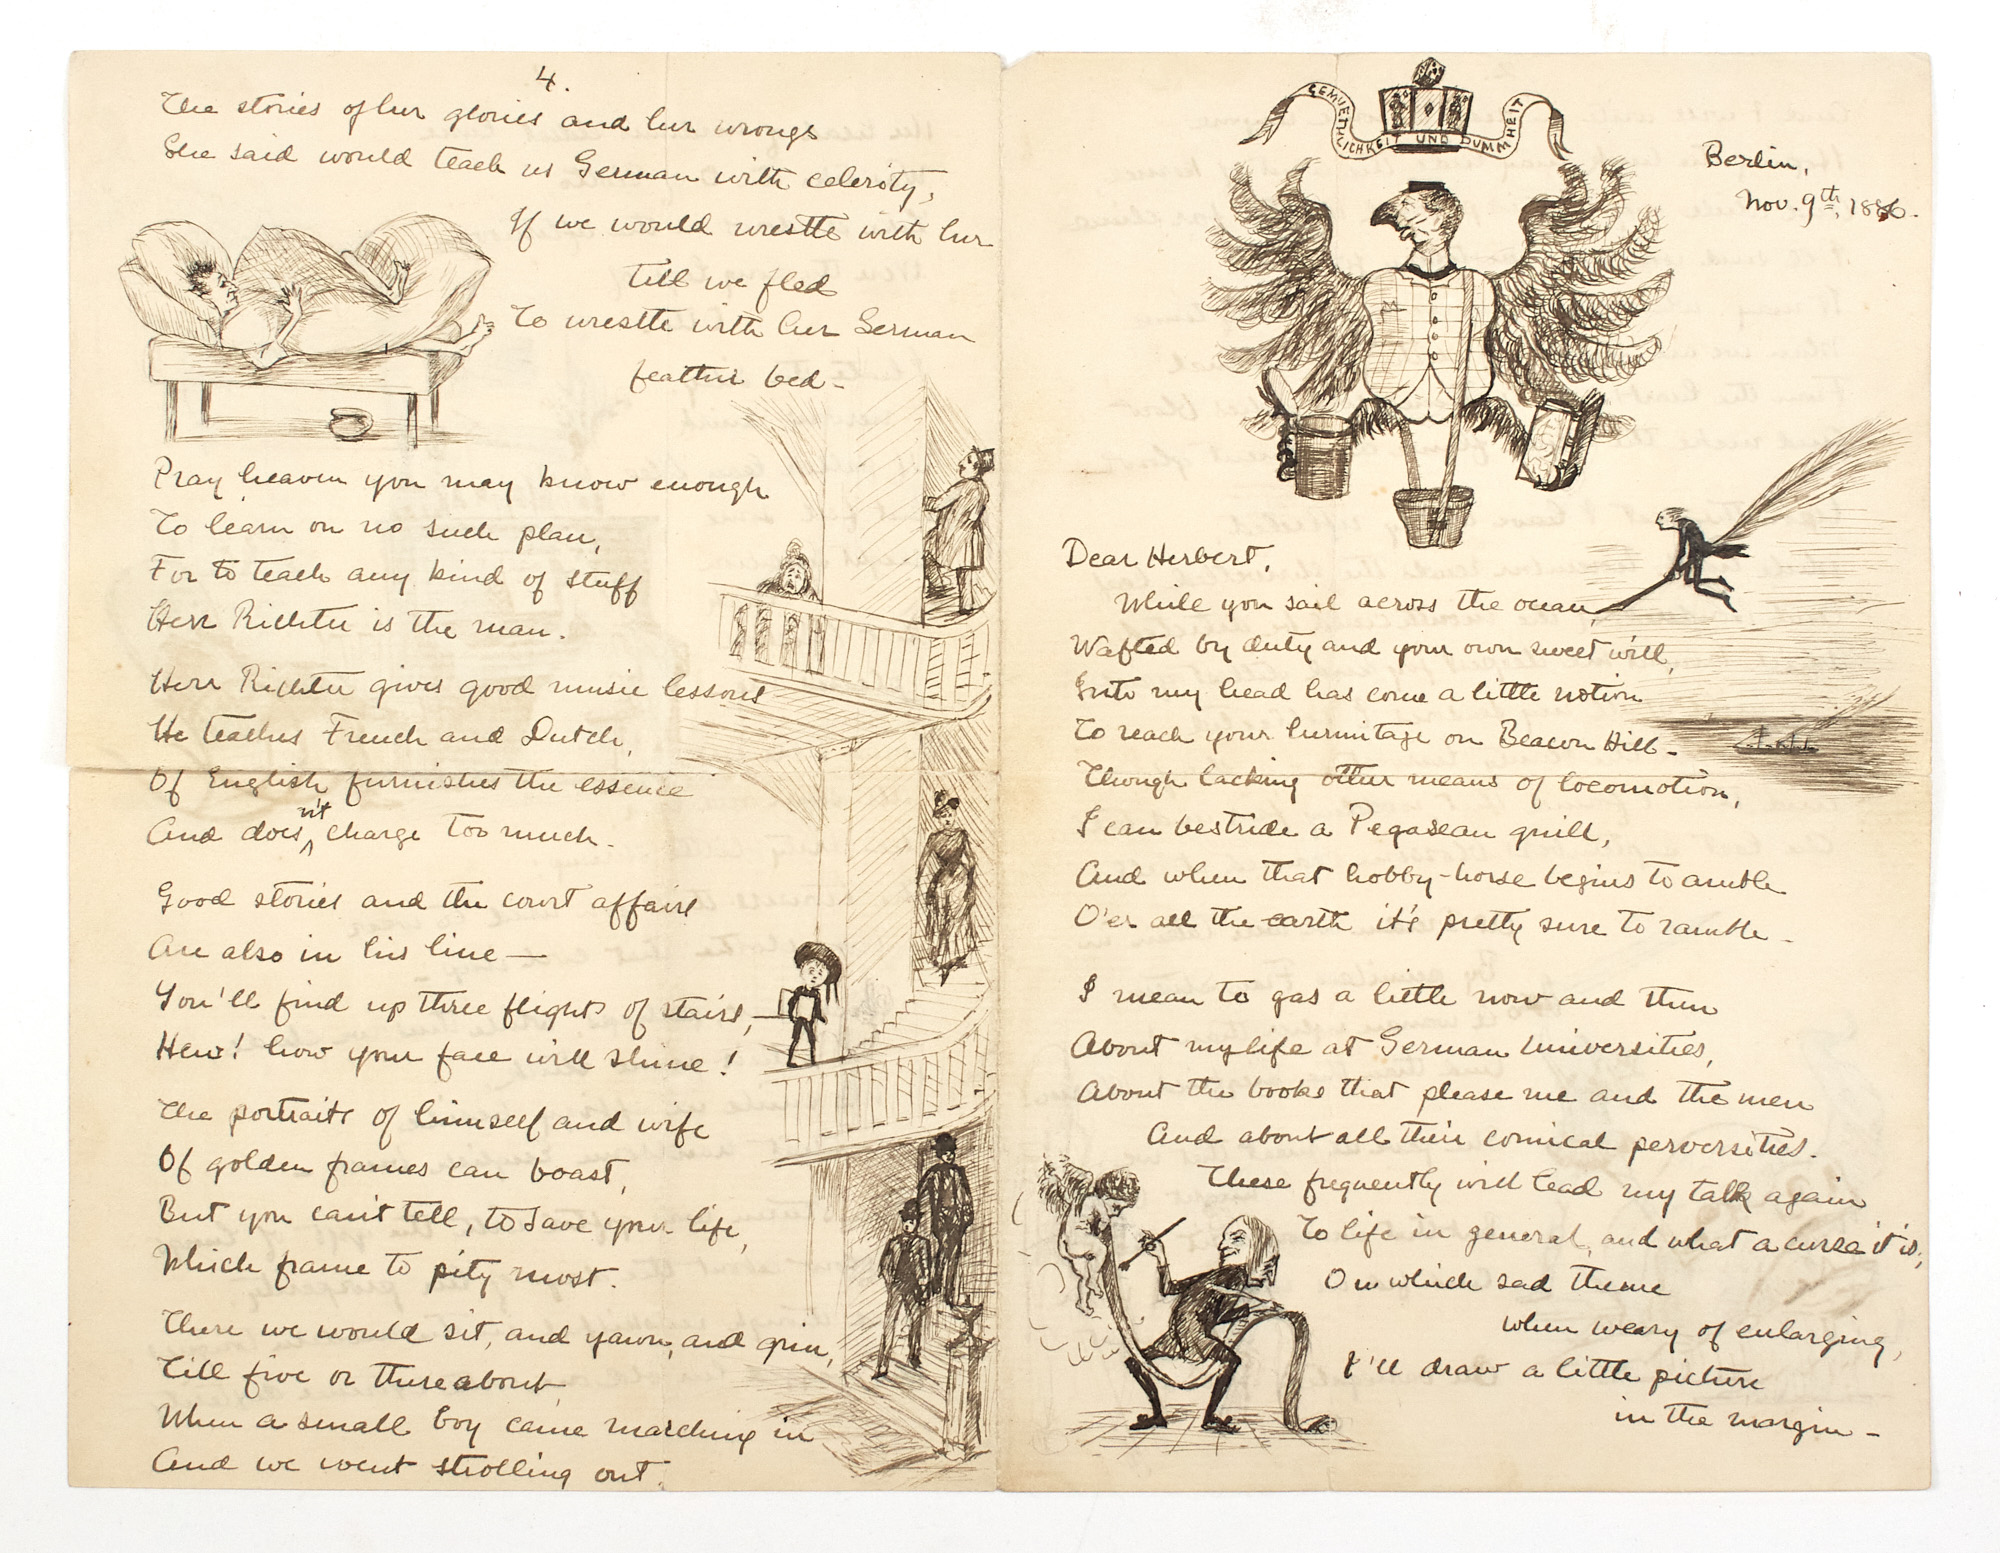 4.
The stories of her glories and her wrongs
She said would teach us German with celerity,
If we would wrestle with her
till we fled
To wrestle with her German
feather bed -
Pray heaven you may know enough
To learn on no such plan,
For to teach any kind of stuff
Herr Richter is the man.
Herr Richter gives good music lessons
He teaches French and Dutch,
Of English furnishes the essence
And doesn't charge too much.
Good stories and the court affairs
Are also in his line —
You'll find up three flights of stairs,
Hew! how your face will shine!
The portraits of himself and wife
Of golden frames can boast,
But you can't tell, to save your life,
Which frame to pity most.
There we would sit, and yawn, and grin,
Till five or thereabout
When a small boy came marching in
And we went strolling out.
GEMUETHLICHKEIT UND DUMMHEIT
Berlin,
Nov. 9th, 1886.
Dear Herbert,
While you sail across the ocean,
Wafted by duty and your own sweet will,
Into my head has come a little notion
To reach your hermitage on Beacon Hill -
Though lacking other means of locomotion,
I can bestride a Pegasean quill,
And when that hobby-horse begins to amble
O'er all the earth it's pretty sure to ramble -
I mean to gas a little now and then
About my life at German Universities,
About the books that please me and the men
And about all their comical perversities.
These frequently will lead my talk again
To life in general, and what a curse it is,
On which sad theme
when weary of enlarging,
I'll draw a little picture
in the margin -